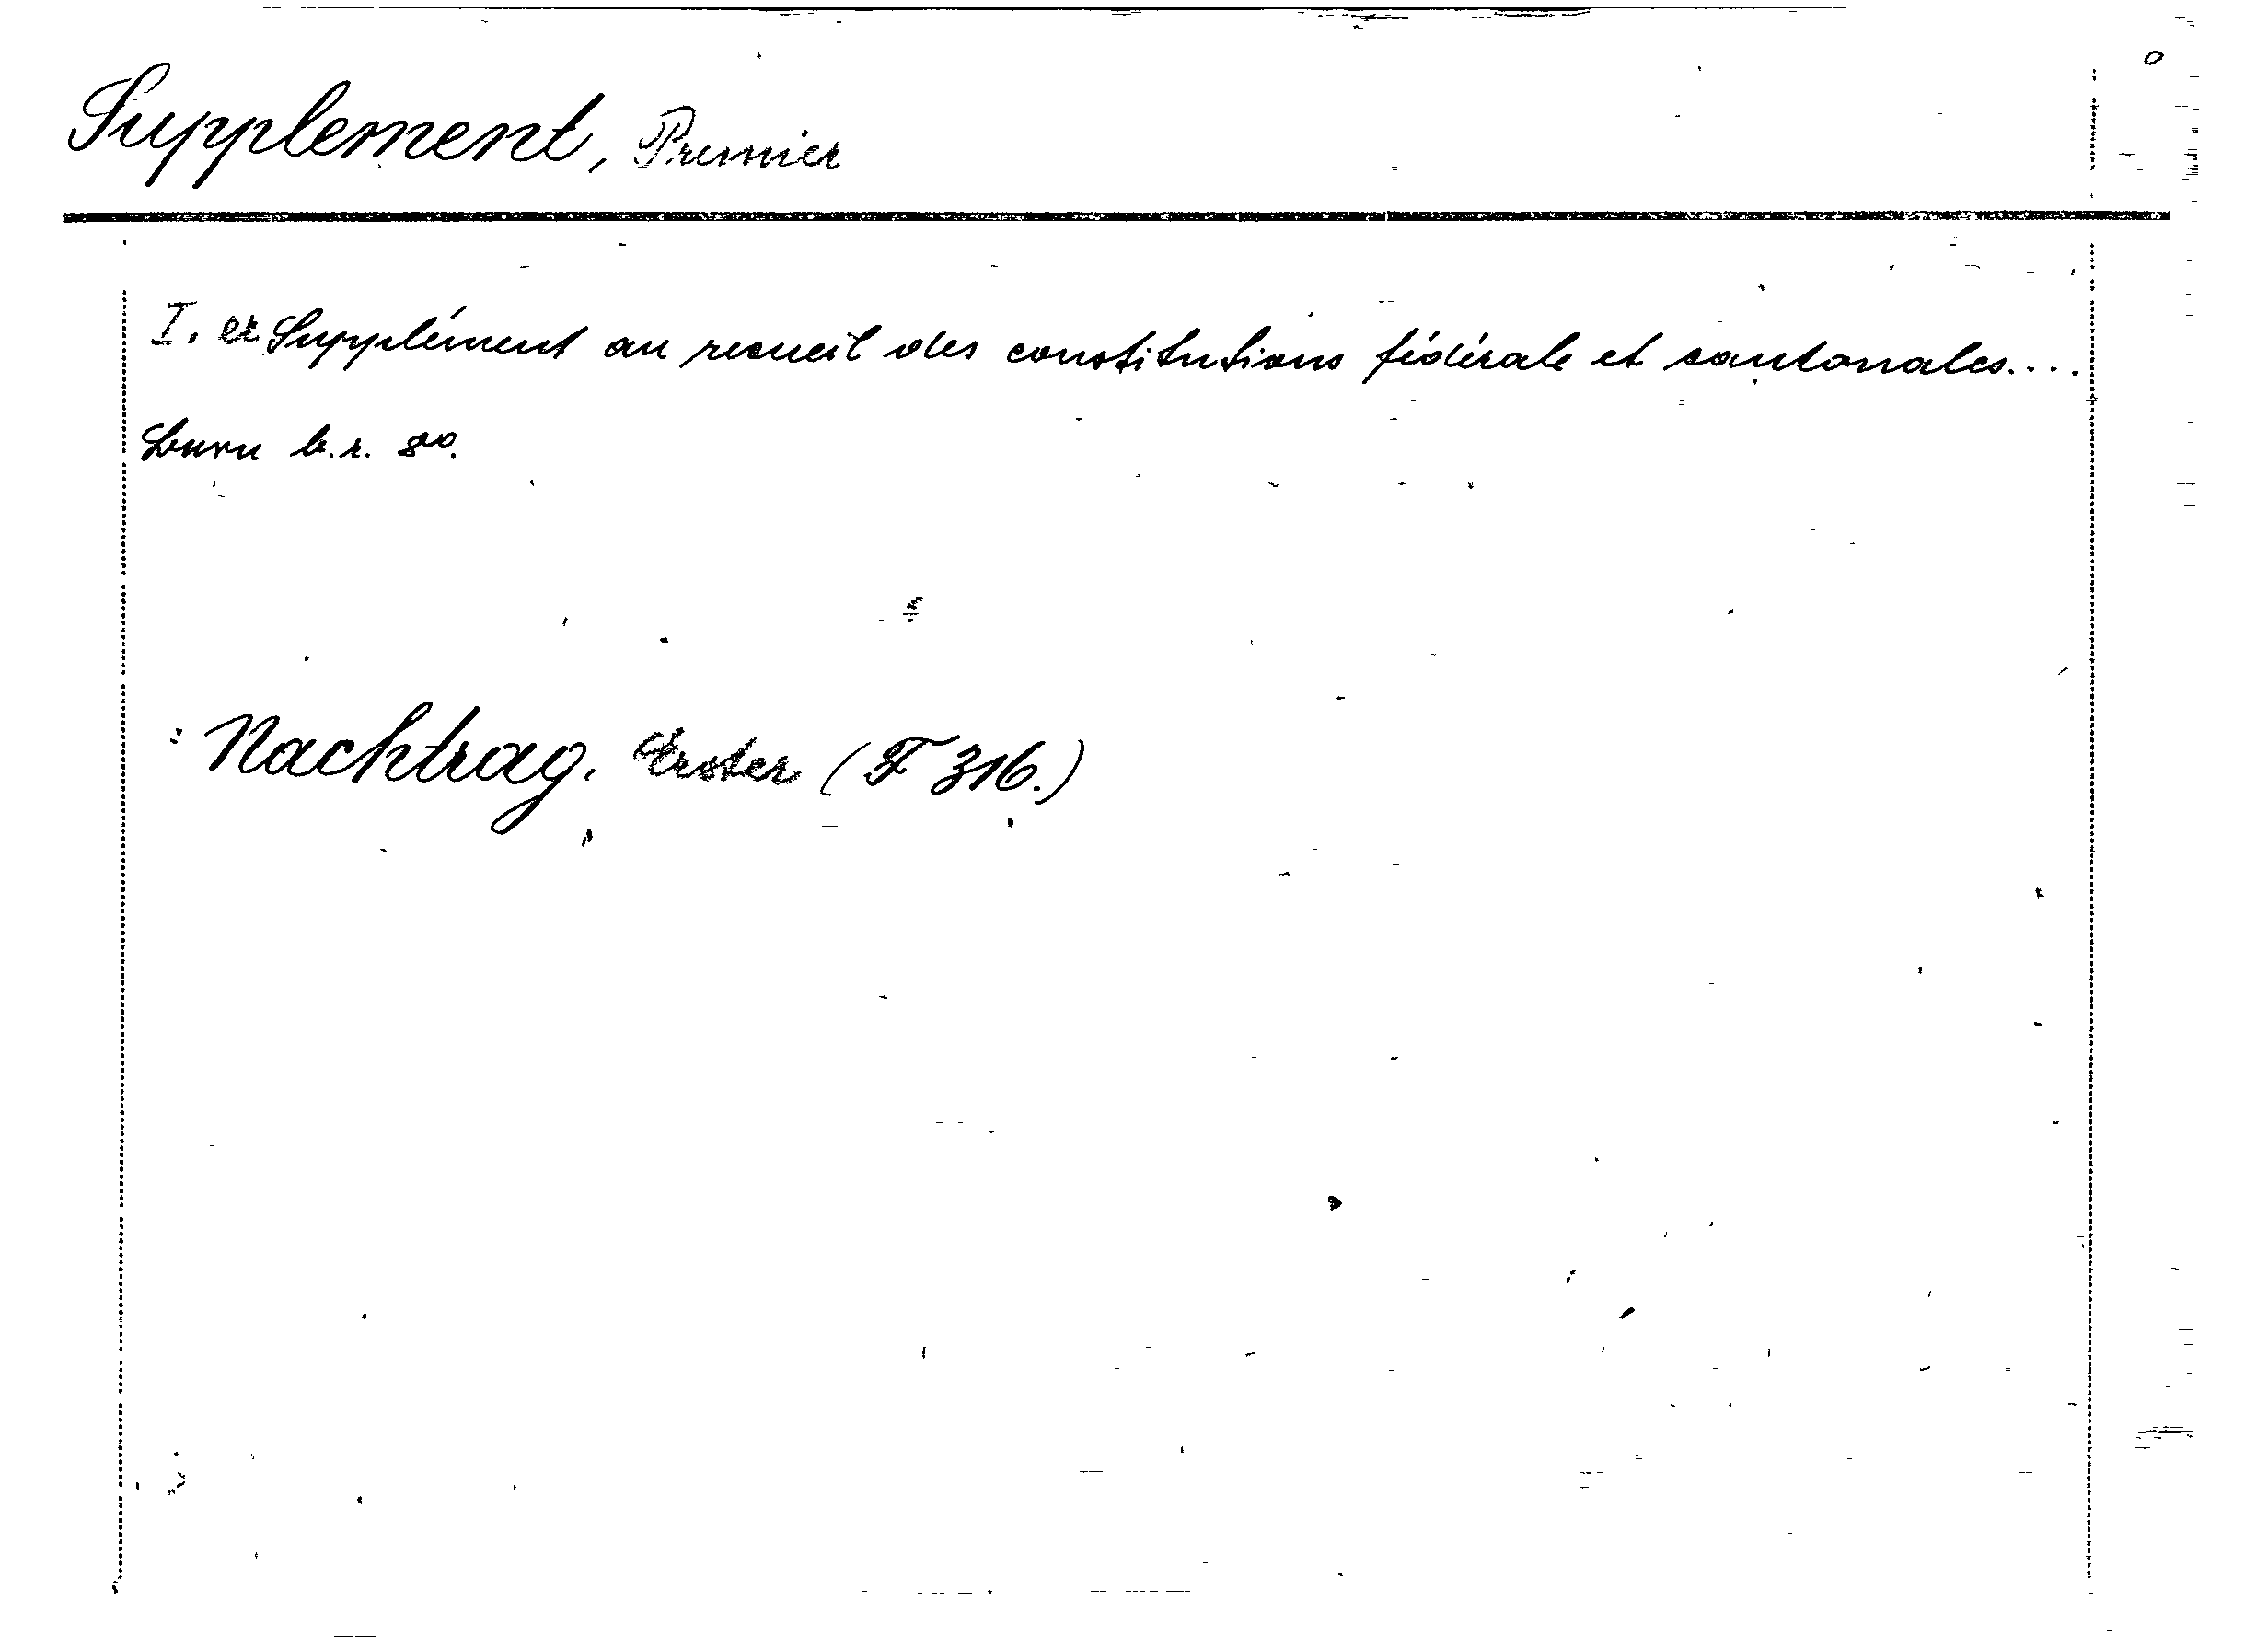 Supplement, Premier
I. er Supplément au recueil des constitutions fédérale et cantonales....
b.r. 8º.
: Nachtrag. Erster (F 316.)